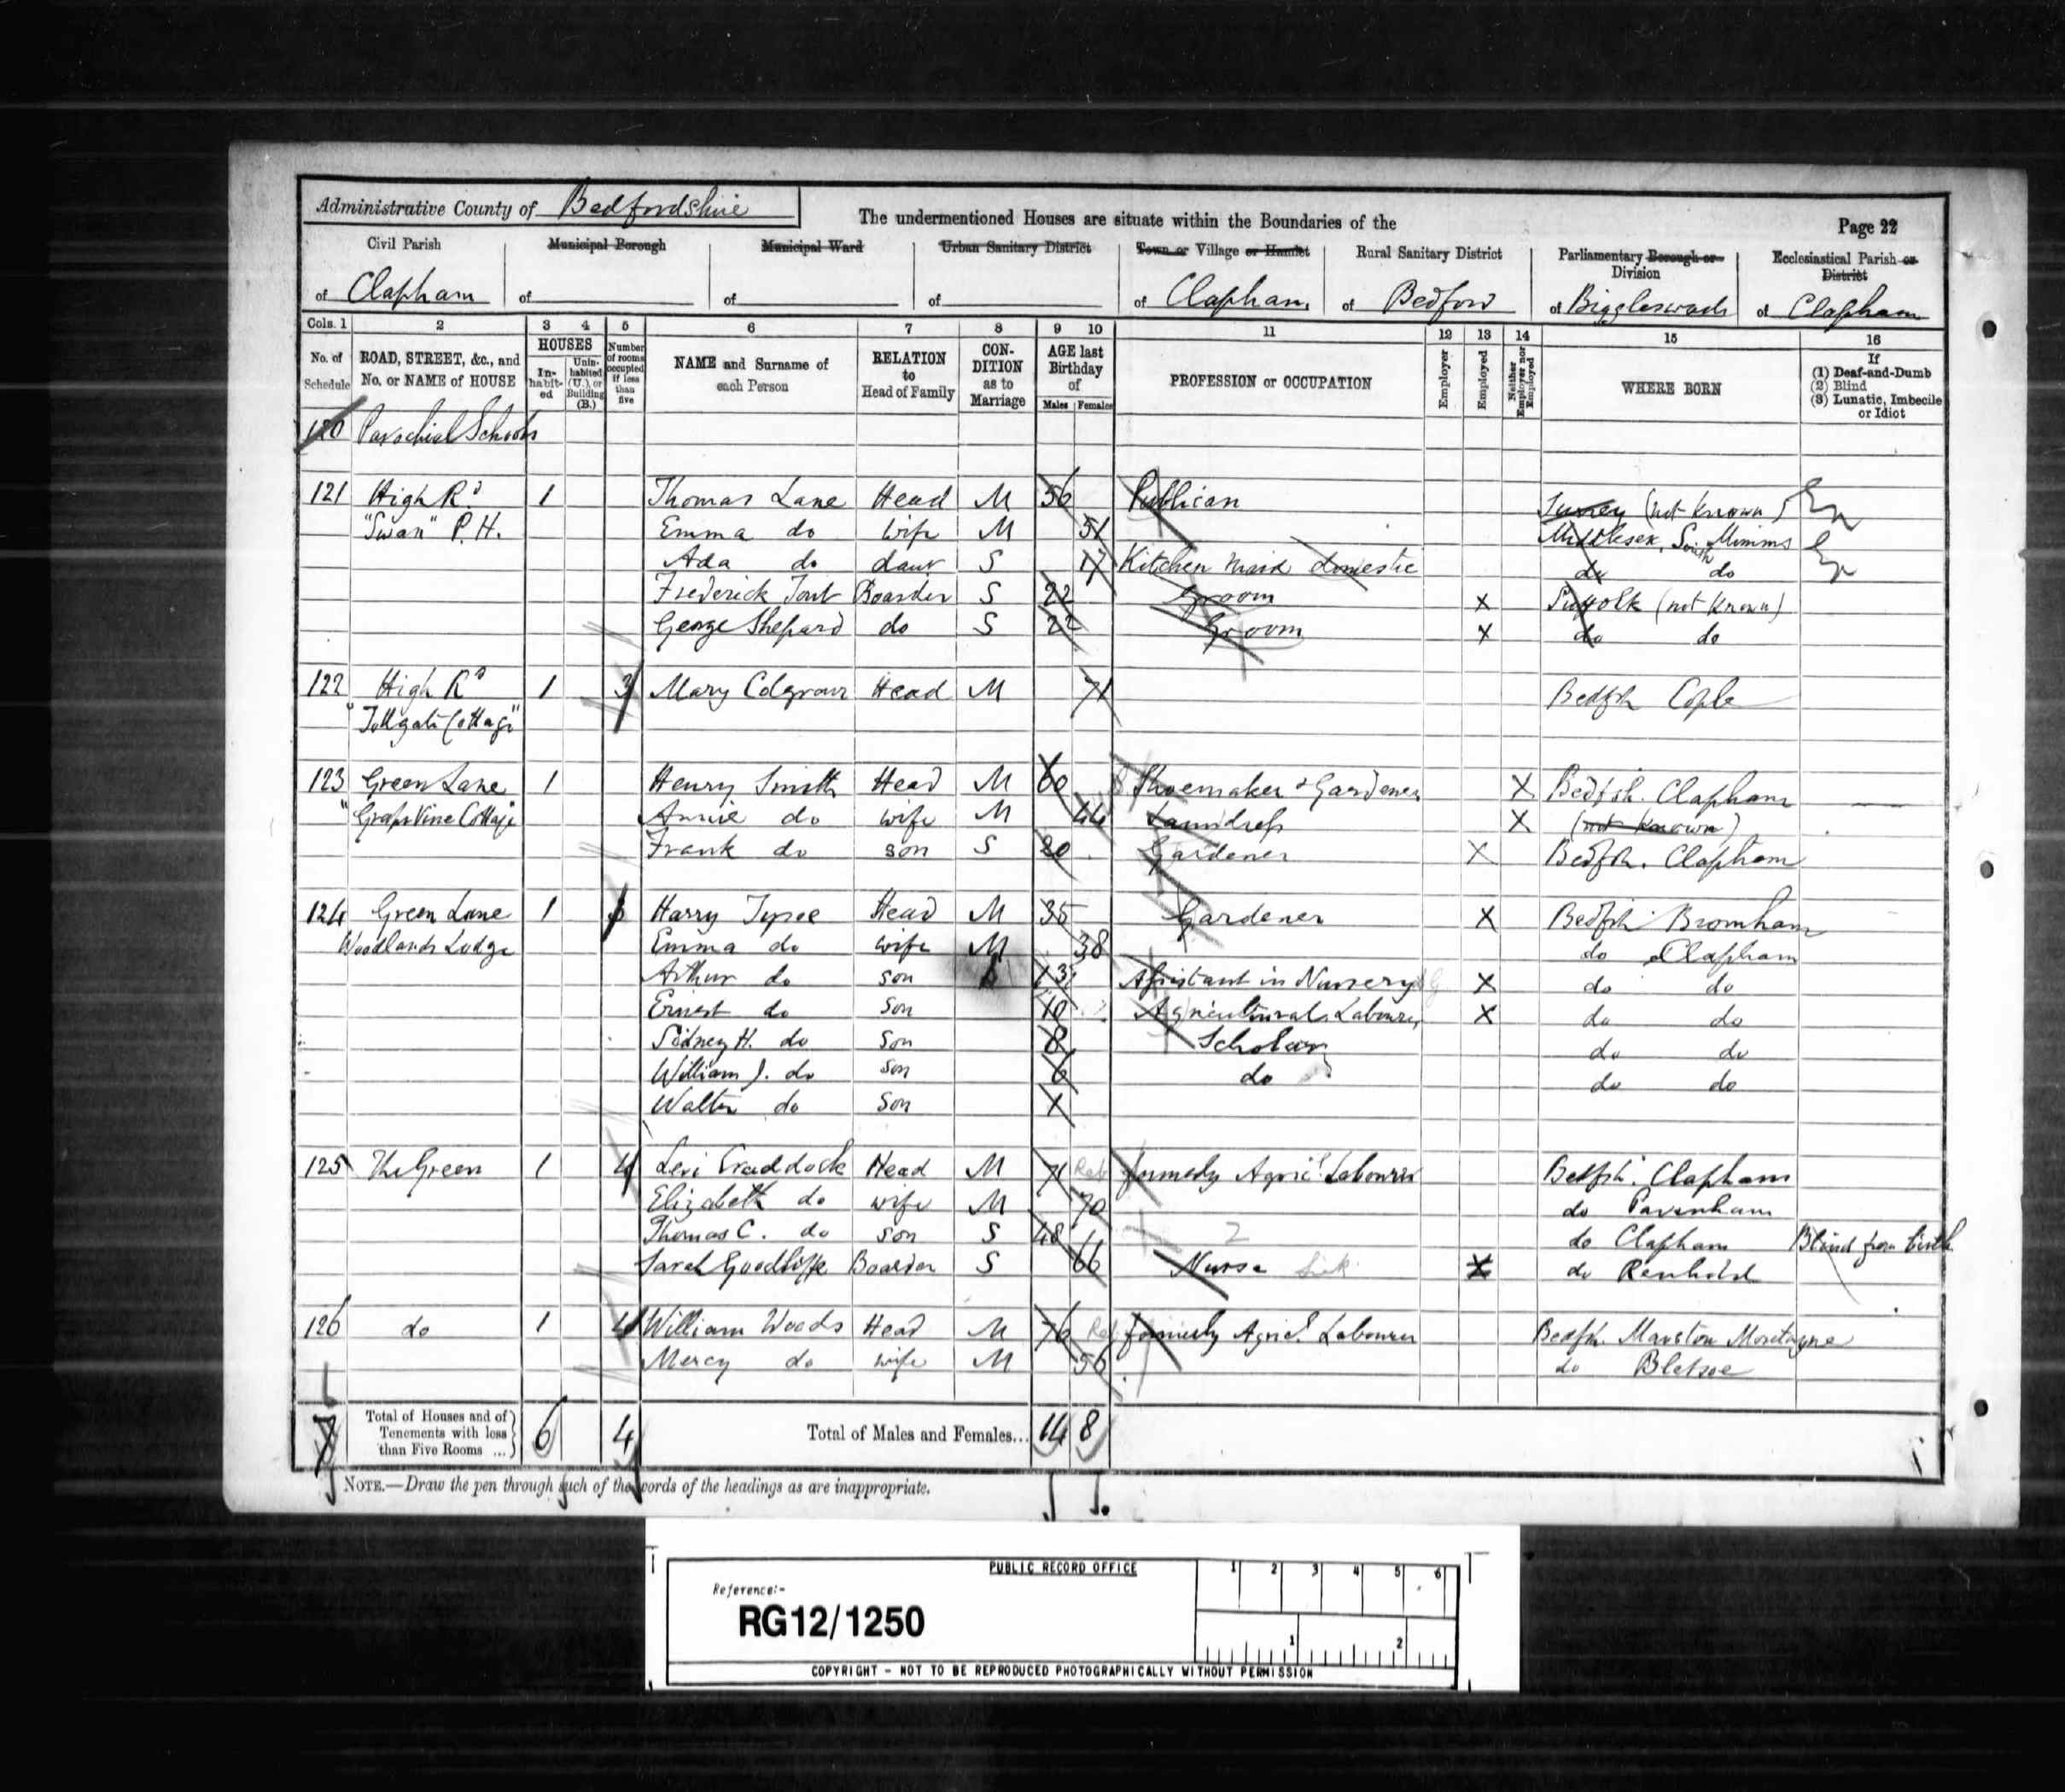 Administrative County of Bedfordshire
The undermentioned Houses are situate within the Boundaries of the
Page 22
Civil Parish
Municipal Borough
Municipal Ward
Urban Sanitary District
Town or Village or Hamlet
Rural Sanitary District
Parliamentary Borough or Division
Ecclesiastical Parish or District
of Clapham
of
of
of
of Clapham
of Bedford
of Biggleswade
of Clapham
Cols. 1 2 3 4 5 6 7 8 9 10 11 12 13 14 15 16
No. of Schedule
ROAD, STREET, &c., and No. or NAME of HOUSE
HOUSES
In-habit-ed
Unin-habited (U.), or Building (B.)
Number of rooms occupied if less than five
NAME and Surname of each Person
RELATION to Head of Family
CON-DITION as to Marriage
AGE last Birthday of
Males Females
PROFESSION or OCCUPATION
Employer
Employed
Neither Employer nor Employed
WHERE BORN
If
(1) Deaf-and-Dumb
(2) Blind
(3) Lunatic, Imbecile or Idiot
120 Parochial Schools
121 High Rd 1 Thomas Lane Head M 56 Publican Surrey (not known)
"Swan" P.H. Emma do wife M 51 Middlesex, South Mimms
Ada do daur S 17 Kitchen Maid domestic do do
Frederick Boarder S 22 Groom X Suffolk (not known)
George Shepard do S 22 Groom X do do
122 High Rd 1 3 Mary Head M 71 Bedfsh Cople
"Tollgate Cottage"
123 Green Lane 1 Henry Smith Head M 60 Shoemaker & Gardener X Bedfsh. Clapham
"Grape Vine Cottage" Annie do wife M 44 Laundress X (not known)
Frank do son S 20 Gardener X Bedfsh. Clapham
124 Green Lane 1 Harry Head M 35 Gardener X Bedfsh Bromham
Woodlands Lodge Emma do wife M 38 do Clapham
Arthur do son S 13 Assistant in Nursery X do do
Ernest do son 10 Agricultural Labourer X do do
Sidney H. do son 8 Scholar do do
William J. do son 6 do do do
Walter do son
125 The Green 1 4 Levi Craddock Head M 71 Ret formerly Agric. Labourer Bedfsh. Clapham
Elizabeth do wife M 70 do Pavenham
Thomas C. do son S 48 2 do Clapham Blind from birth
Sarah Goodliffe Boarder S 66 Nurse Sick X do Renhold
126 do 1 4 William Woods Head M 76 Ret formerly Agricl. Labourer Bedfsh. Marston Moretayne
Mercy do wife M 56 do Bletsoe
7 Total of Houses and of Tenements with less than Five Rooms ... 6 4 Total of Males and Females... 14 8
NOTE.—Draw the pen through such of the words of the headings as are inappropriate.
PUBLIC RECORD OFFICE
1 2 3 4 5 6
Reference:-
RG12/1250
1 2
COPYRIGHT - NOT TO BE REPRODUCED PHOTOGRAPHICALLY WITHOUT PERMISSION